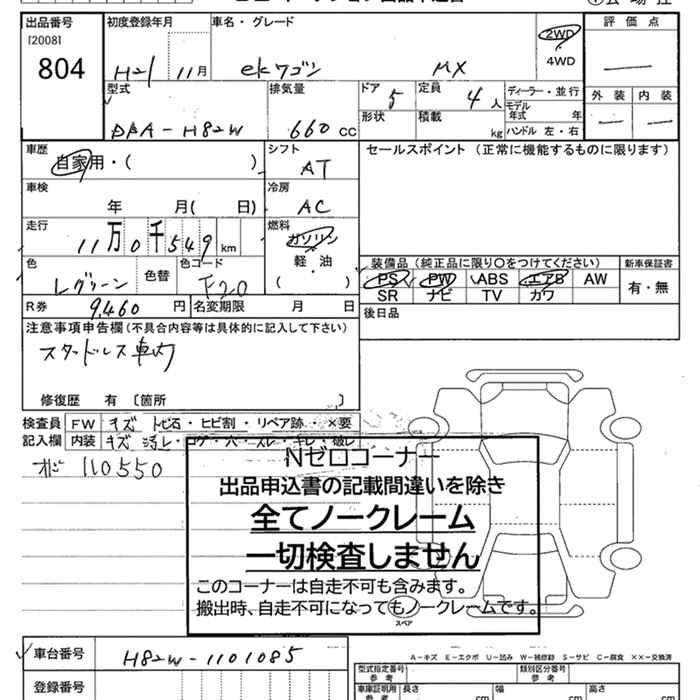 出品番号 初度登録年月 車名・グレード 評価点
[2008]
804 H21 11月 ekワゴン MX 2WD 4WD
外装 内装
型式 排気量 ドア 5 定員 4人 ディーラー・並行
モデル年式 年
DBA-H82W 660cc 形状 積載 kg ハンドル 左・右
車歴 シフト セールスポイント (正常に機能するものに限ります)
自家用・( ) AT
車検 冷房
年 月( 日) AC
走行 燃料
11万0千549km ガソリン
軽・油
( )
色 色替 色コード 装備品 (純正品に限り〇をつけてください) 新車保証書
レグリーン F20 PS PW ABS エアB AW 有・無
SR ナビ TV カワ
R券 9,460円 名変期限 月 日 後日品
注意事項申告欄(不具合内容等は具体的に記入して下さい)
スタッドレス車内
修復歴 有 〔箇所 〕
検査員 FW キズ トビ石・ヒビ割・リペア跡・×要
記入欄 内装 キズ 汚レ・コゲ・穴・スレ・キレ・破レ
110550
Nゼロコーナー
出品申込書の記載間違いを除き
全てノークレーム
一切検査しません
このコーナーは自走不可も含みます。
搬出時、自走不可になってもノークレームです。
スペア
A-キズ E-エクボ U-凹み W-補修跡 S-サビ C-腐食 ××-交換済
車台番号 H82W-1101085
型式指定番号 参考 類別区分番号 参考
登録番号 車庫証明用 参考 長さ cm 幅 cm 高さ cm